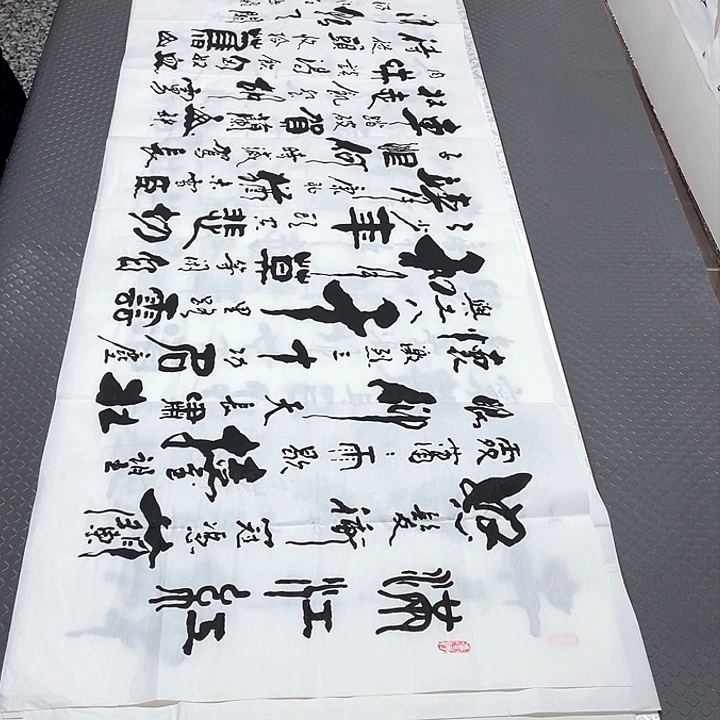 滿江紅
怒髮衝冠憑闌
處瀟:雨歇擡望
眼仰天長嘯壯
懷激烈三十功名塵
與土八千里路雲
和月莫等閒白
了少年頭空悲切
靖康恥猶未雪臣
子恨何時滅駕長
車踏破賀蘭山缺
壯志飢餐胡虜
肉笑談渴飲匈奴血
待從頭收拾舊山